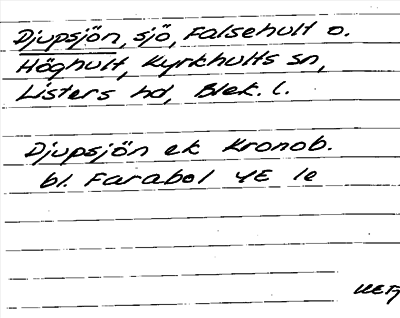 Djupsjön, sjö, Falsehult o.
Höghult, Kyrkhults sn,
Listers hd, Blek. l.
Djupsjön ek Kronob.
bl. Farabol 4E 1e